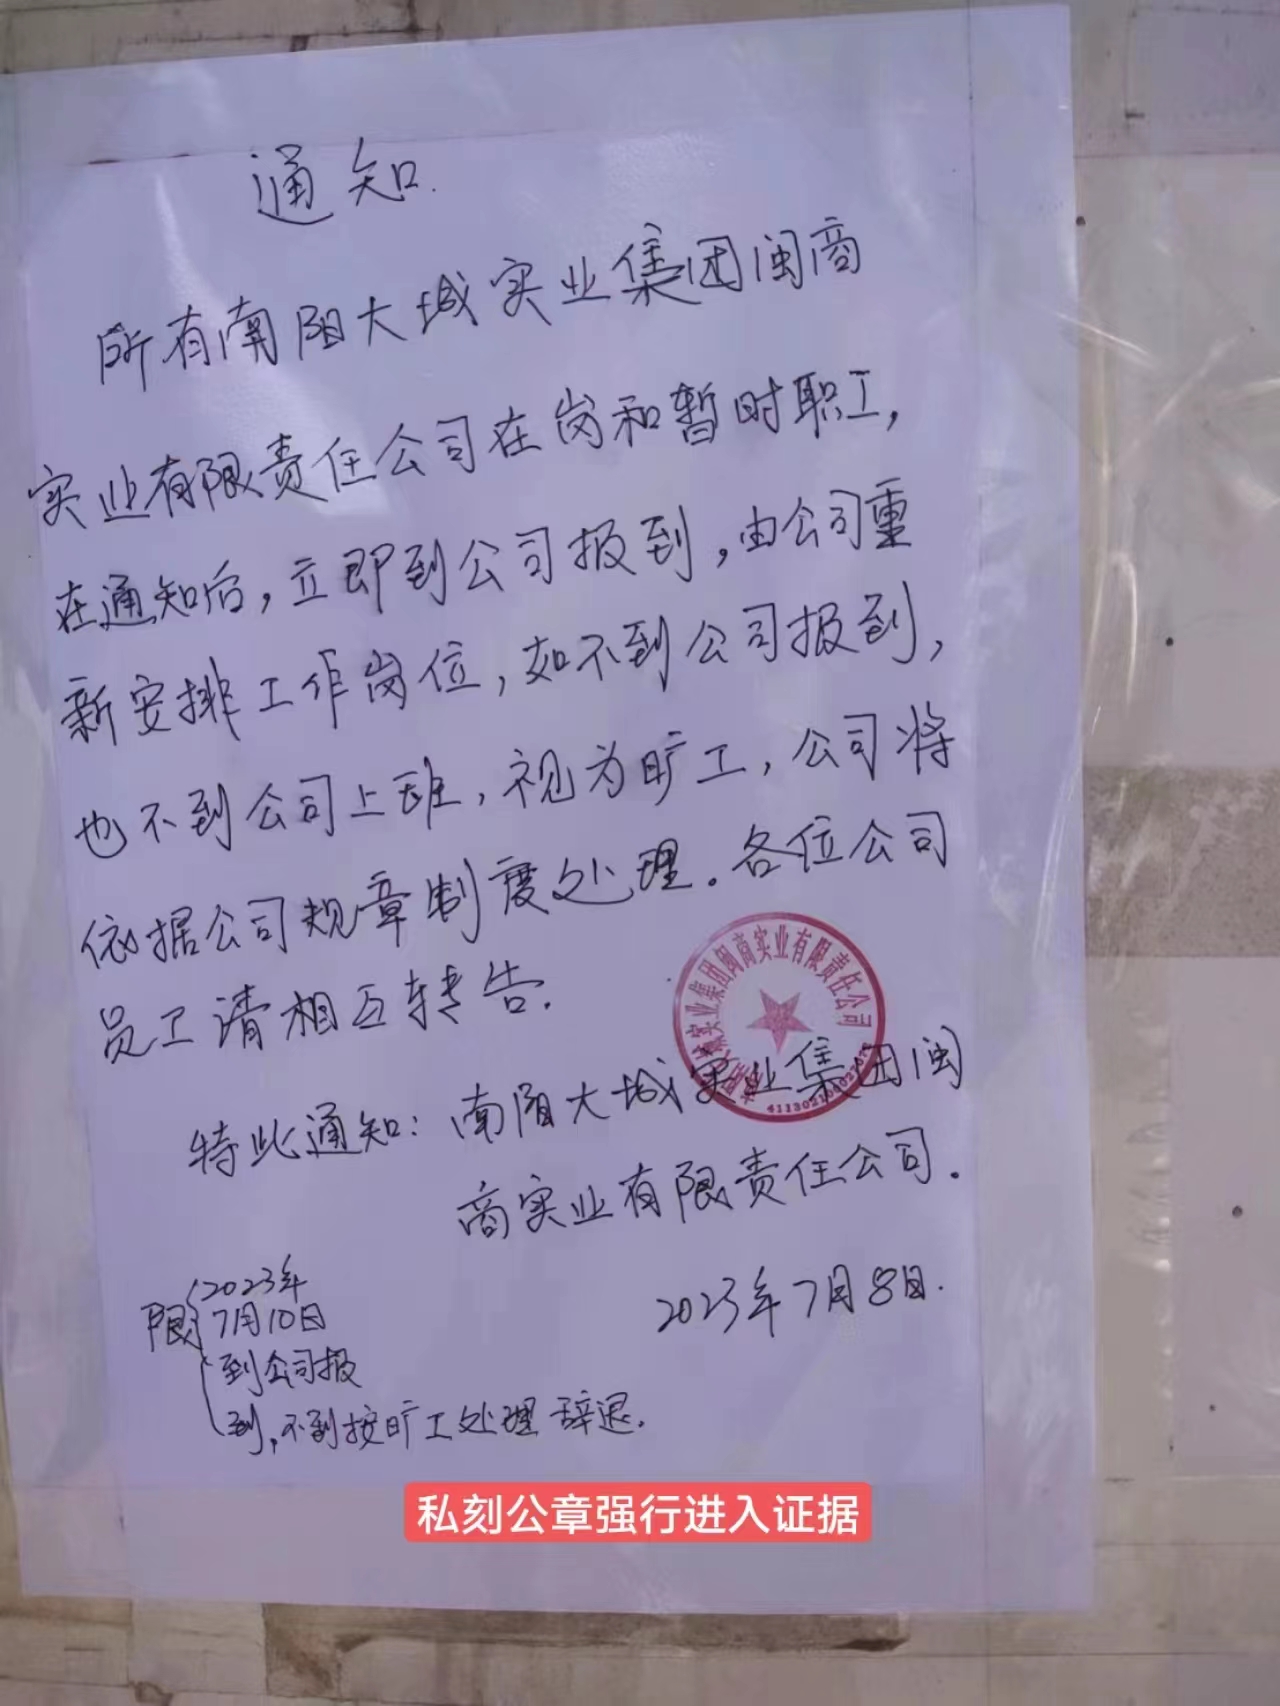 通知.
所有南阳大城实业集团闽商
实业有限责任公司在岗和暂时职工,
在通知后,立即到公司报到,由公司重
新安排工作岗位,如不到公司报到,
也不到公司上班,视为旷工,公司将
依据公司规章制度处理。各位公司
员工请相互转告.
实业集团闽商实业有限责任公司
特此通知:南阳大城实业集团闽
商实业有限责任公司.
2023年7月8日.
限
2023年
7月10日
到公司报
到,不到按旷工处理 辞退.
私刻公章强行进入证据